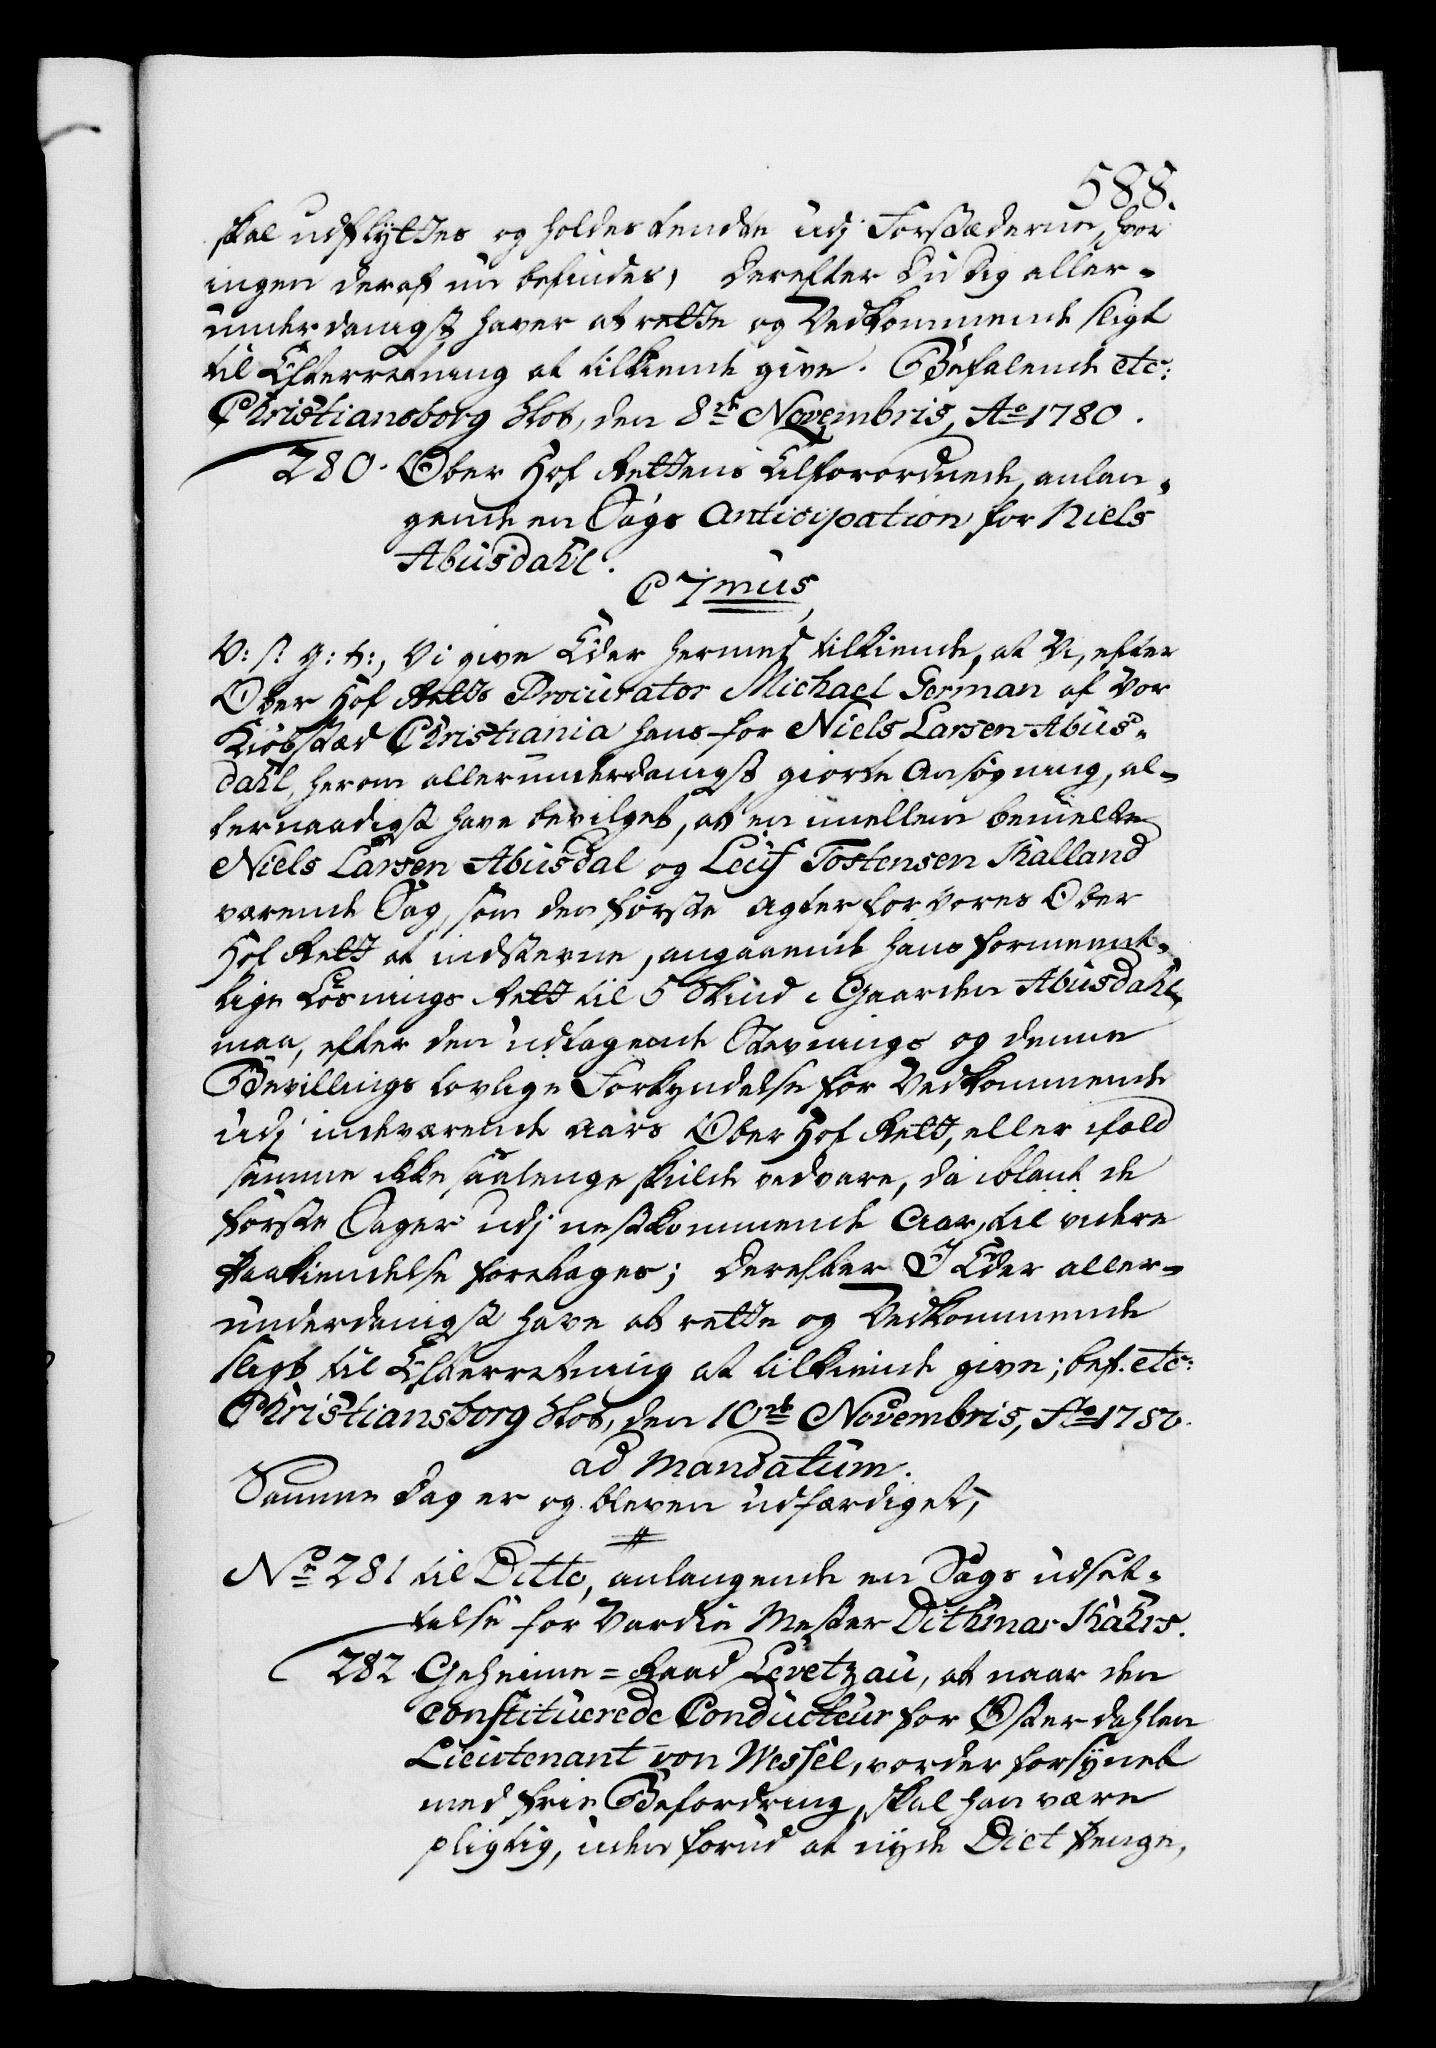 588.
skal udflyttes og holdes tendte udj Forstæderne, hvor
ingen deraf nu befindes, Derefter Du dig aller-
underdanigst haver at rette og Vedkommende sligt
til Efterretning at tilkiende give. Befalende etc:
Christiansborg Slot, den 8de Novembris, Ao 1780.
280. Ober Hof Rettens Tilforordnede, anlan-
gende en Sags Anticipation for Niels
Abusdahl.
C 7mus,
V: s: g: t:, Vi give Eder hermed tilkiende, at Vi, efter
Ober Hof Retts Procurator Michael German af Vor
Kiøbstæd Christiania hans for Niels Larsen Abus-
dahl, herom allerunderdanigst giorte Ansøgning, al-
lernaadigst have bevilget, at en imellem bemelte
Niels Larsen Abusdal og Leuf Tostensen Kalland
værende Sag, som den første agter for Vores Ober
Hof Rett at indstevne, angaaende hans formeent-
lige Løsnings Rett til 5 Skind i Gaarden Abusdahl,
maa, efter den udtagende Stevnings og denne
Bevillings lovlige Forkyndelse for Vedkommende
udj indeværende Aars Ober Hof Rett, eller ifald
samme ikke saalenge skulde vedvare, da iblant de
første Sager udj nestkommende Aar, til videre
Paakiendelse foretages; Derefter I Eder aller-
underdanigst have at rette og Vedkommende
sligt til Efterretning at tilkiende give; bef. etc:
Christiansborg Slot, den 10de Novembris, Ao 1780.
ad Mandatum.
Samme Dag er og bleven udfærdiget,
No 281 til Ditto, anlangende en Sags udset-
telse for Vardin Mester Dithmar Kahrs.
282 Geheime=Raad Levetzau, at naar den
constituerede Conducteur for Østerdahlen
Lieutenant von Wessel, vorder forsynet
med frie Befordring, skal han være
pligtig, uden forud at nyde Diet Penge,